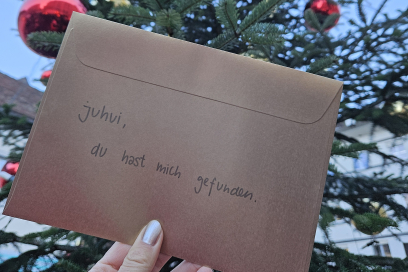 juhui,
du hast mich gefunden.